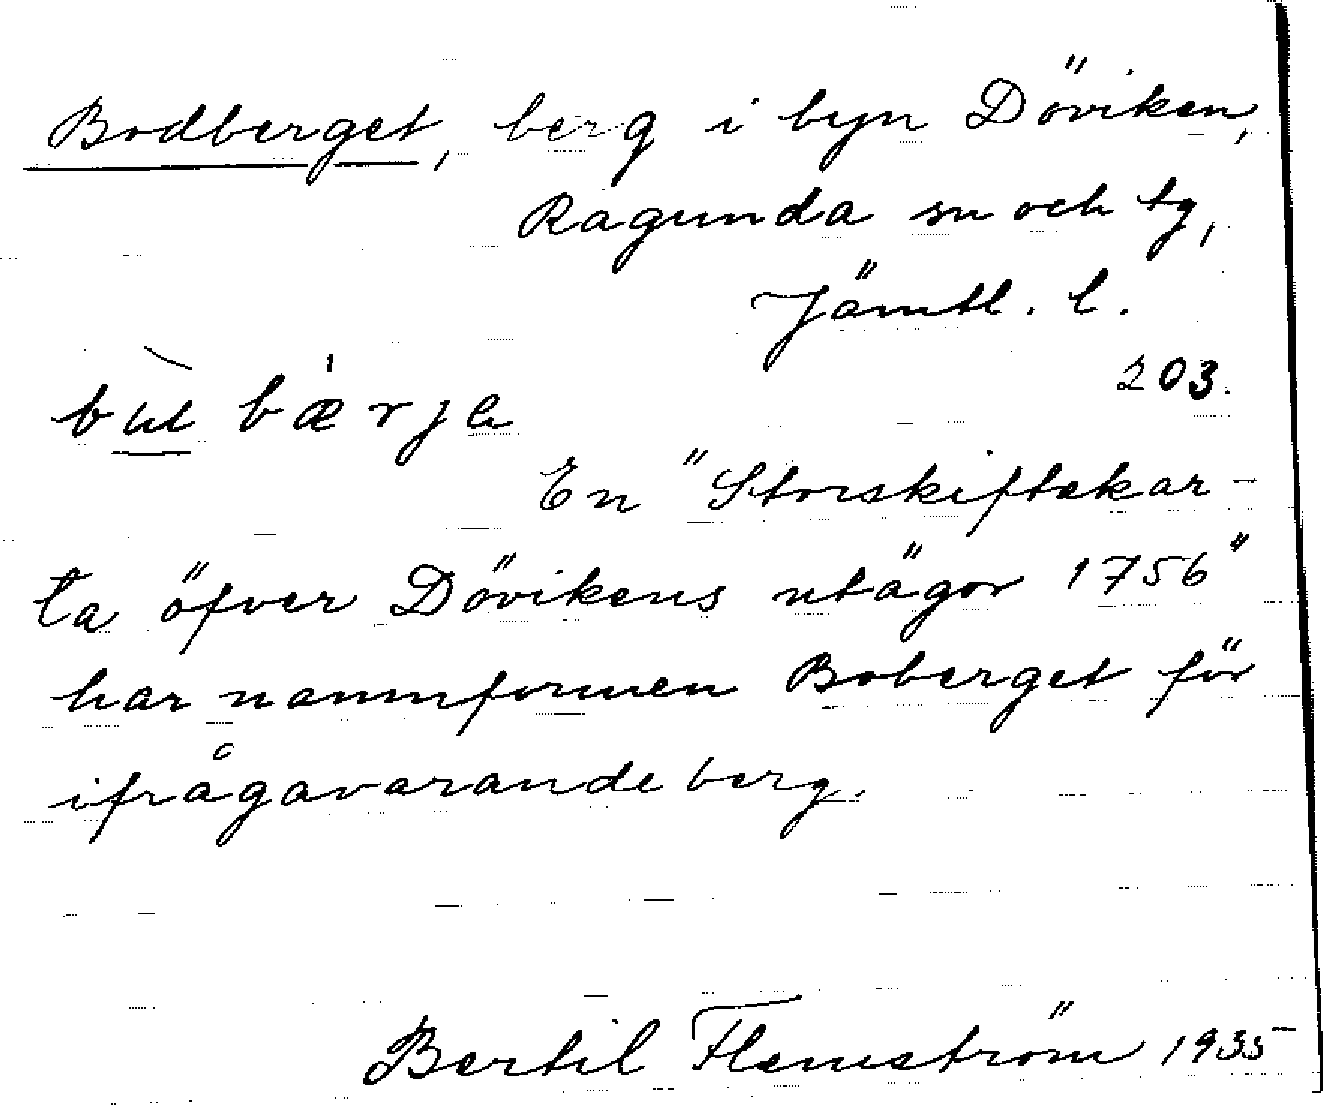 Bodberget, berg i byn Döviken,
Ragunda sn och tg,
Jämtl. l.
203.
En "Storskifteskar-
ta öfver Dövikens utägor 1756"
har namnformen Boberget för
ifrågavarande berg.
Bertil Flemström 1935